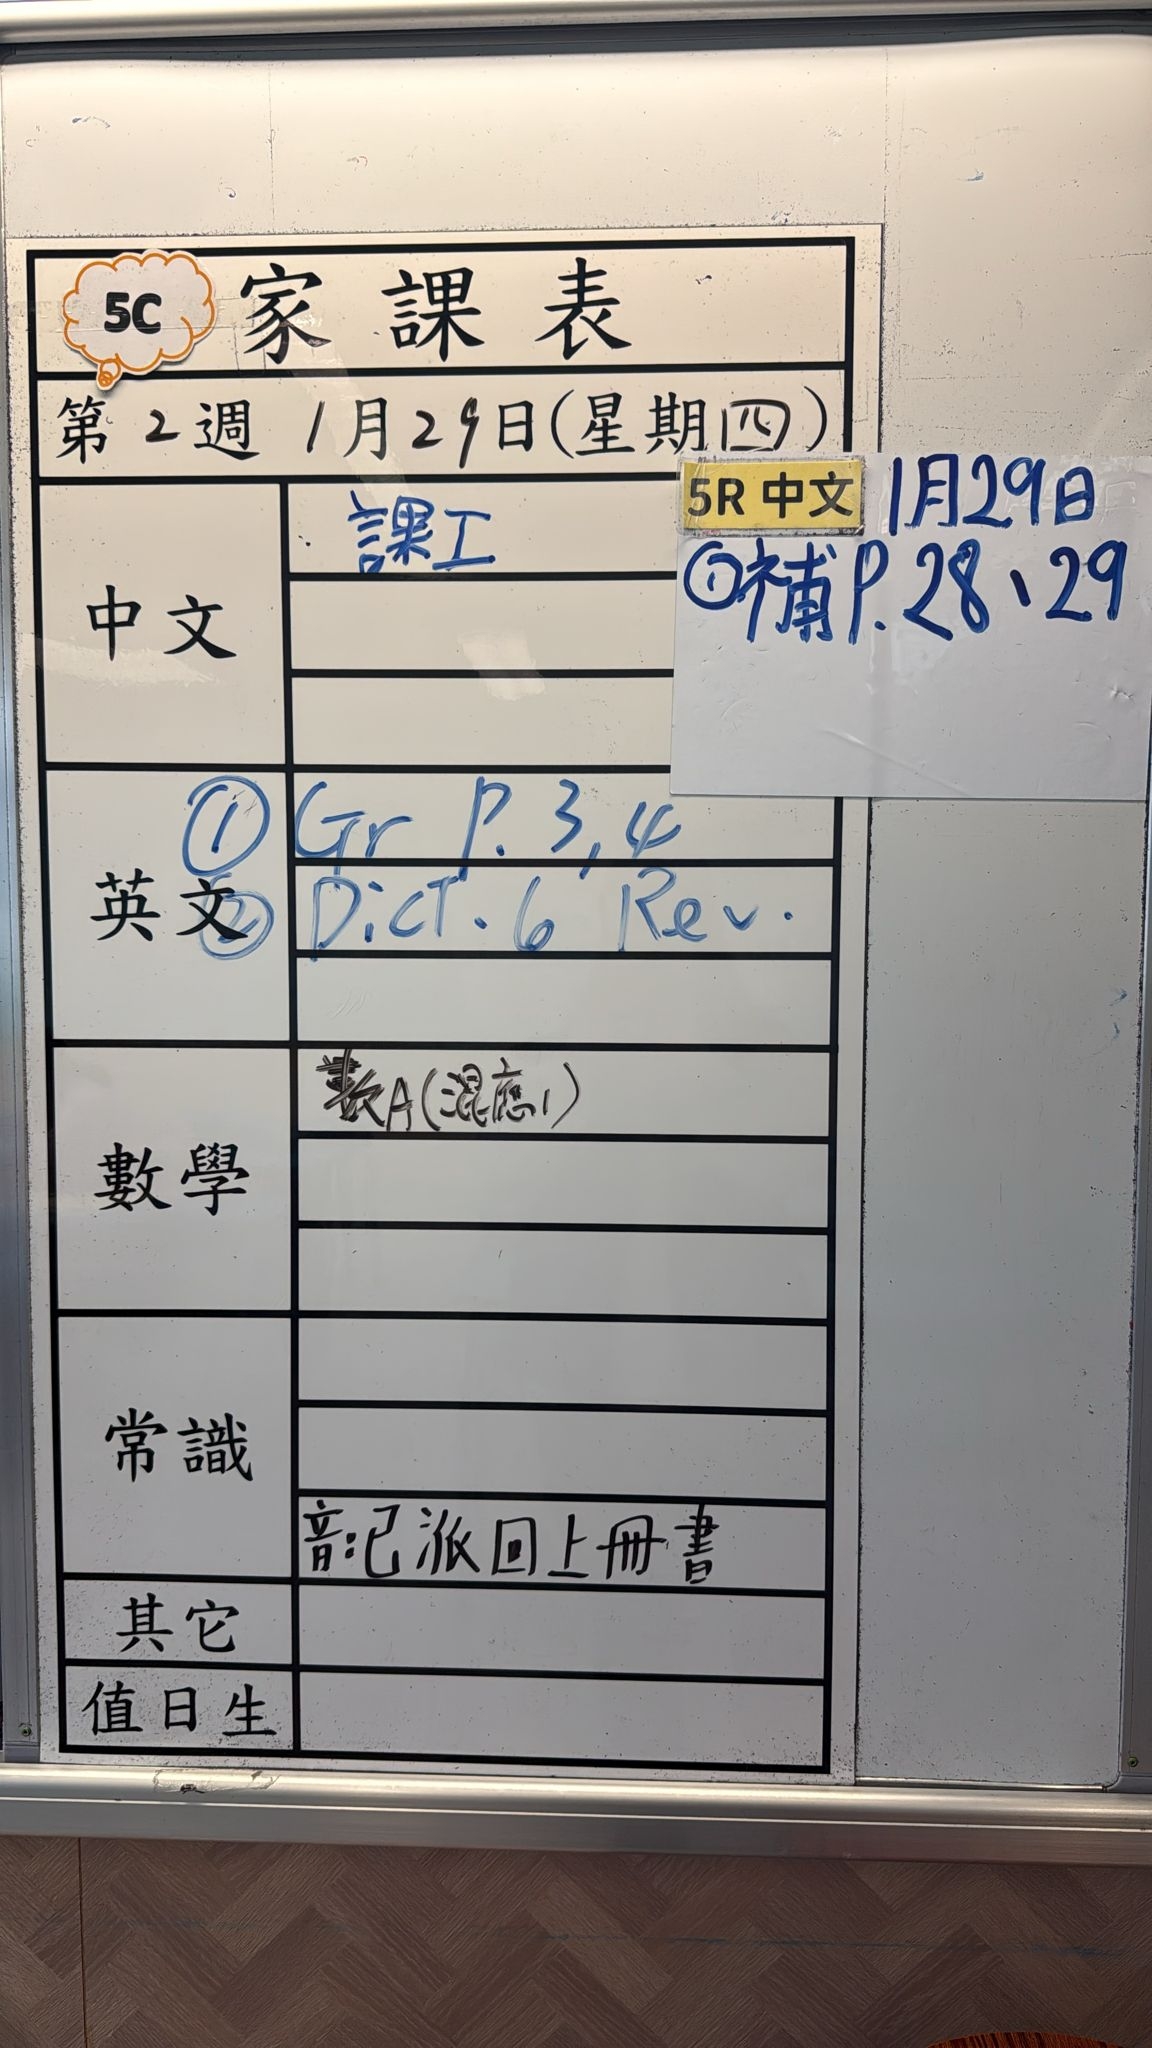 5C 家課表
第2週 1月29日(星期四)
5R 中文 1月29日
①補P.28、29
中文
課工
英文
① Gr P. 3, 4
② Dict. 6 Rev.
數學
數A(混應1)
常識
記派回上冊書
其它
值日生